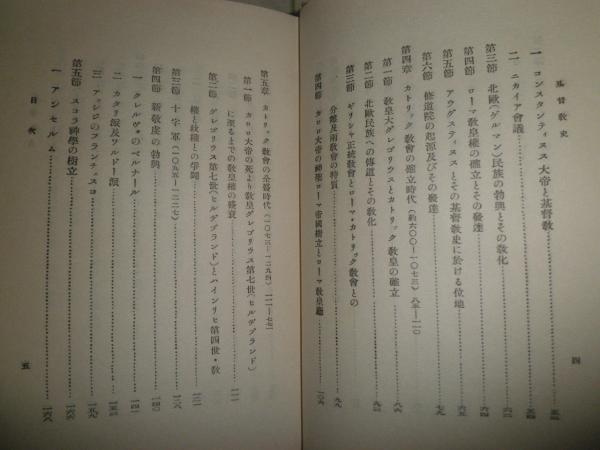 基督敎史
一 コンスタンティヌス大帝と基督敎
二 ニカイア會議
第三節 北歐(ゲルマン)民族の勃興とその敎化
第四節 ローマ敎皇權の確立とその發達
第五節 アウグスティヌスとその基督敎史に於ける位地
第六節 修道院の起源及びその發達
第四章 カトリック敎會の確立時代(約六〇〇—一〇七三) 八五—一一〇
第一節 敎皇大グレゴリウスとカトリック敎皇の確立
第二節 北歐民族への傳道とその敎化
第三節 ギリシヤ正統敎會とローマ・カトリック敎會との
分離及兩敎會の特質
第四節 カロロ大帝の神聖ローマ帝國樹立とローマ敎皇廳
四
第五章 カトリック敎會の全盛時代(一〇七三—一二九四)
第一節 カロロ大帝の死より敎皇グレゴリウス第七世(ヒルデブランド)
に至るまでの敎皇權の盛衰
第二節 グレゴリウス第七世(ヒルデブランド)とハインリヒ第四世・敎
權と政權との爭鬪
第三節 十字軍(一〇九五—一二二七)
第四節 新敬虔の勃興
一 クレルヴォのベルナール
二 カタリ派及ワルドー派
三 アッシジのフランチェスコ
第五節 スコラ神學の樹立
一 アンセルム
目次
五